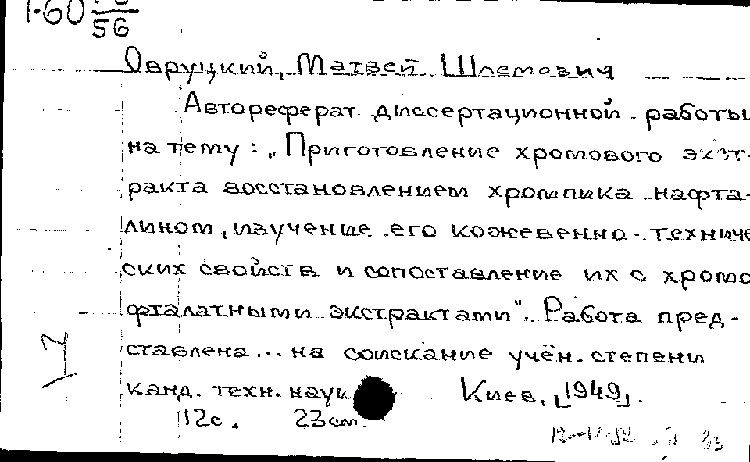 1-60
56
Овруцкий, Матвей Шлемович
Автореферат диссертационной работы
на тему: „Приготовление хромового экст-
ракта восстановлением хромпика нафта-
лином, изучение его кожевенно-техниче
ских свойств и сопоставление их с хромо
фталатными экстрактами". Работа пред-
ставлена... на соискание учён. степени
канд. техн. наук Киев, [1949].
12с. 23см.